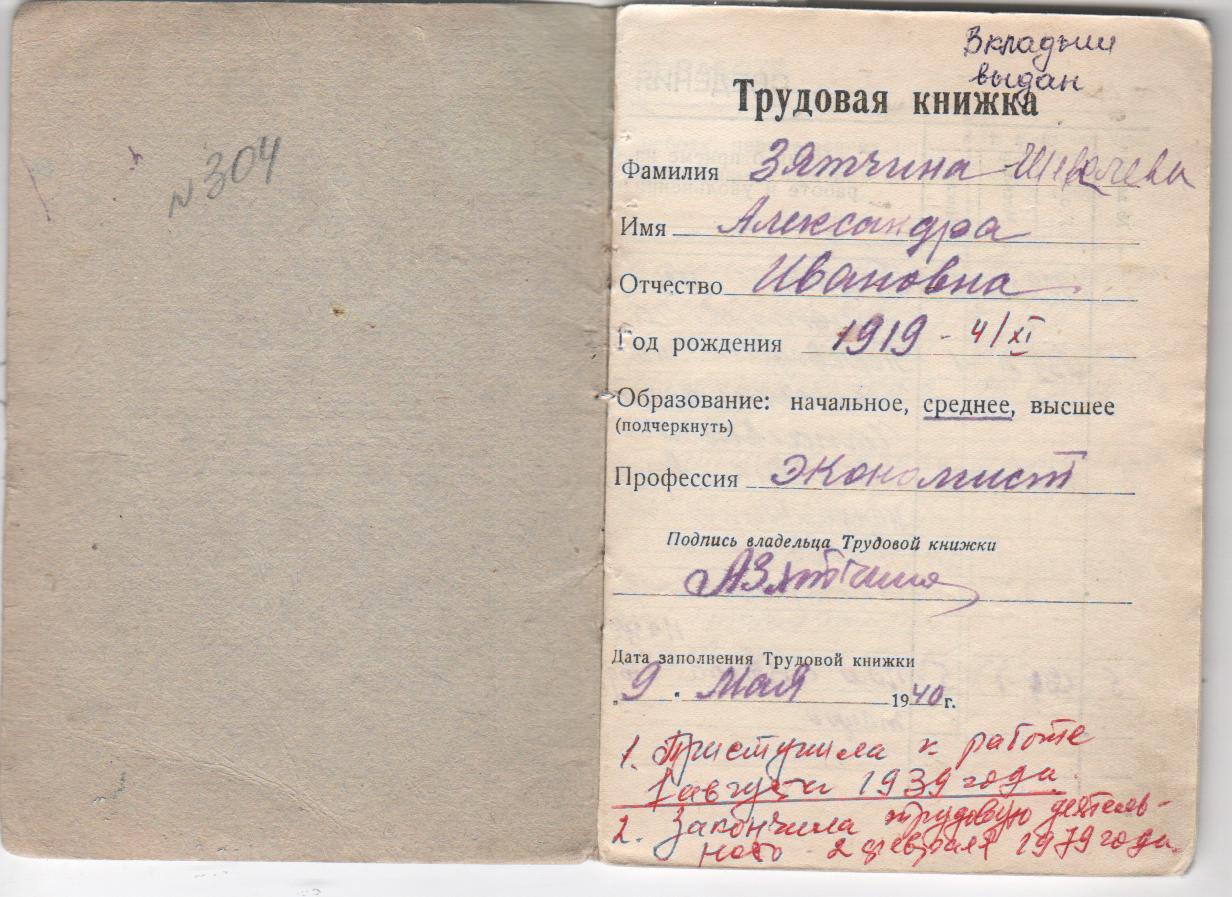 №304
Вкладыш
выдан
Трудовая книжка
Фамилия Зятчина
Имя Александра
Отчество Ивановна
Год рождения 1919 - 4/XI
Образование: начальное, среднее, высшее
(подчеркнуть)
Профессия экономист
Подпись владельца Трудовой книжки
АЗятчина
Дата заполнения Трудовой книжки
„9" Мая 1940 г.
1. Приступила к работе
1 августа 1939 года.
2. Закончила трудовую деятель-
ность 2 февраля 1979 года.